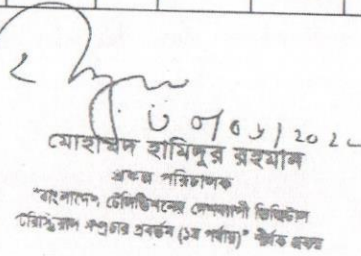 মোহাম্মদ হামিদুর রহমান
প্রকল্প পরিচালক
"বাংলাদেশ টেলিভিশনের দেশব্যাপী ডিজিটাল
টেরিস্ট্রিয়াল সম্প্রচার প্রবর্তন (১ম পর্যায়)" শীর্ষক প্রকল্প